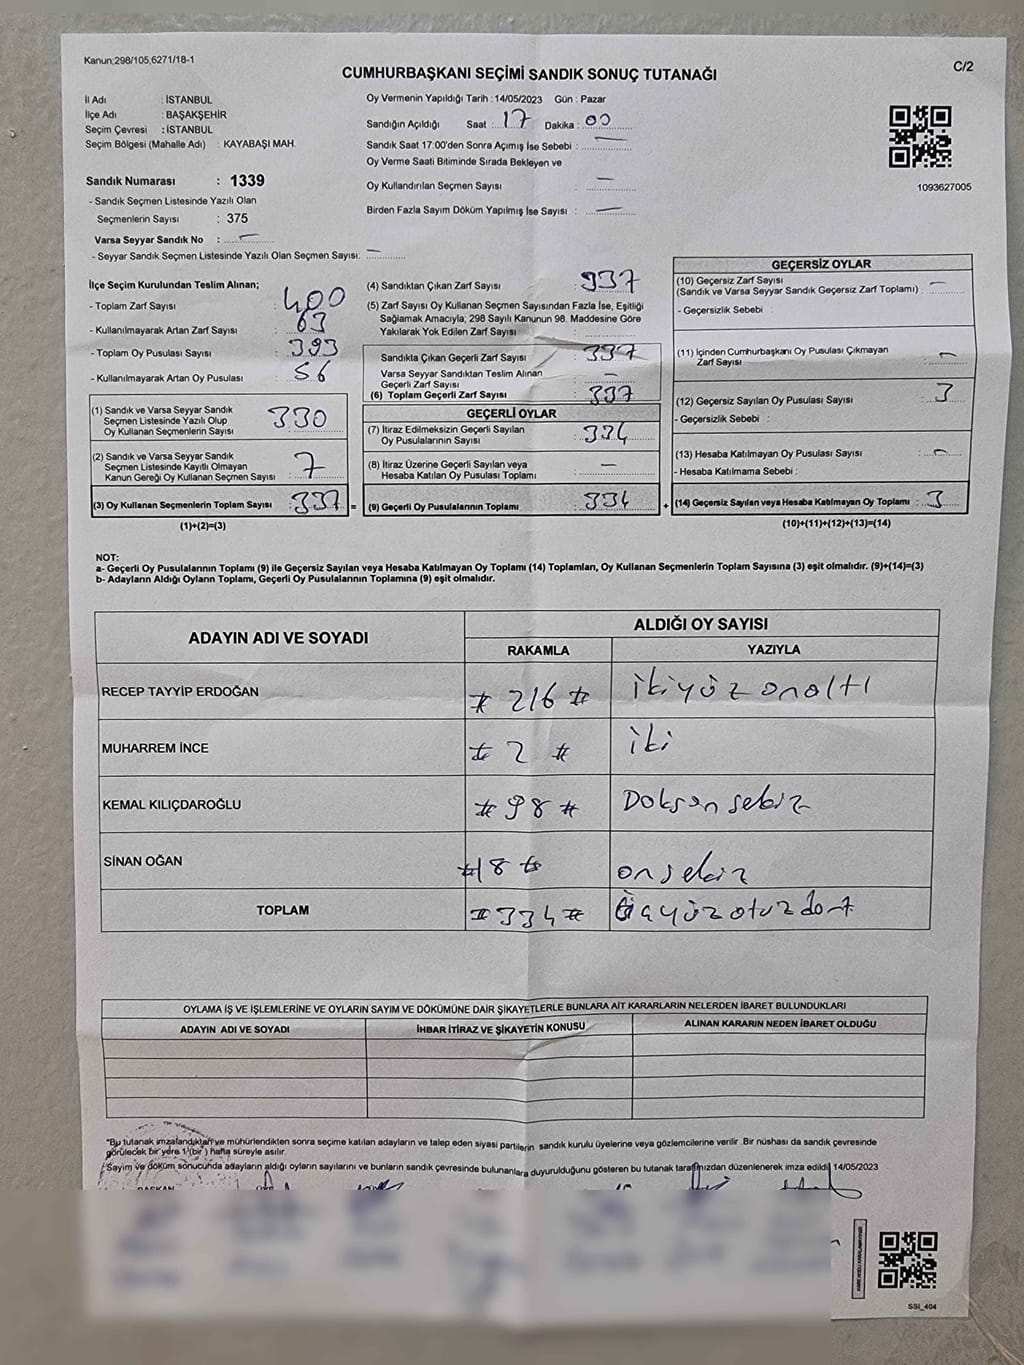 Kanun;298/105,6271/18-1
C/2
CUMHURBAŞKANI SEÇİMİ SANDIK SONUÇ TUTANAĞI
İl Adı : İSTANBUL
İlçe Adı : BAŞAKŞEHİR
Seçim Çevresi : İSTANBUL
Seçim Bölgesi (Mahalle Adı) : KAYABAŞI MAH.
Sandık Numarası : 1339
- Sandık Seçmen Listesinde Yazılı Olan
Seçmenlerin Sayısı : 375
Varsa Seyyar Sandık No : —
- Seyyar Sandık Seçmen Listesinde Yazılı Olan Seçmen Sayısı: —
Oy Vermenin Yapıldığı Tarih : 14/05/2023 Gün : Pazar
Sandığın Açıldığı Saat : 17 Dakika : 00
Sandık Saat 17:00'den Sonra Açımış İse Sebebi : —
Oy Verme Saati Bitiminde Sırada Bekleyen ve
Oy Kullandırılan Seçmen Sayısı : —
Birden Fazla Sayım Döküm Yapılmış İse Sayısı : —
1093627005
İlçe Seçim Kurulundan Teslim Alınan;
- Toplam Zarf Sayısı : 400
- Kullanılmayarak Artan Zarf Sayısı : 63
- Toplam Oy Pusulası Sayısı : 393
- Kullanılmayarak Artan Oy Pusulası : 56
(1) Sandık ve Varsa Seyyar Sandık
Seçmen Listesinde Yazılı Olup
Oy Kullanan Seçmenlerin Sayısı : 330
(2) Sandık ve Varsa Seyyar Sandık
Seçmen Listesinde Kayıtlı Olmayan
Kanun Gereği Oy Kullanan Seçmen Sayısı : 7
(3) Oy Kullanan Seçmenlerin Toplam Sayısı : 337 =
(1)+(2)=(3)
(4) Sandıktan Çıkan Zarf Sayısı : 337
(5) Zarf Sayısı Oy Kullanan Seçmen Sayısından Fazla İse, Eşitliği
Sağlamak Amacıyla; 298 Sayılı Kanunun 98. Maddesine Göre
Yakılarak Yok Edilen Zarf Sayısı :
Sandıkta Çıkan Geçerli Zarf Sayısı : 337
Varsa Seyyar Sandıktan Teslim Alınan
Geçerli Zarf Sayısı : —
(6) Toplam Geçerli Zarf Sayısı : 337
GEÇERLİ OYLAR
(7) İtiraz Edilmeksizin Geçerli Sayılan
Oy Pusulalarının Sayısı : 334
(8) İtiraz Üzerine Geçerli Sayılan veya
Hesaba Katılan Oy Pusulası Toplamı : —
(9) Geçerli Oy Pusulalarının Toplamı : 334 +
GEÇERSİZ OYLAR
(10) Geçersiz Zarf Sayısı
(Sandık ve Varsa Seyyar Sandık Geçersiz Zarf Toplamı) : —
- Geçersizlik Sebebi :
(11) İçinden Cumhurbaşkanı Oy Pusulası Çıkmayan
Zarf Sayısı : —
(12) Geçersiz Sayılan Oy Pusulası Sayısı : 3
- Geçersizlik Sebebi :
(13) Hesaba Katılmayan Oy Pusulası Sayısı : —
- Hesaba Katılmama Sebebi :
(14) Geçersiz Sayılan veya Hesaba Katılmayan Oy Toplamı : 3
(10)+(11)+(12)+(13)=(14)
NOT:
a- Geçerli Oy Pusulalarının Toplamı (9) ile Geçersiz Sayılan veya Hesaba Katılmayan Oy Toplamı (14) Toplamları, Oy Kullanan Seçmenlerin Toplam Sayısına (3) eşit olmalıdır. (9)+(14)=(3)
b- Adayların Aldığı Oyların Toplamı, Geçerli Oy Pusulalarının Toplamına (9) eşit olmalıdır.
ADAYIN ADI VE SOYADI
ALDIĞI OY SAYISI
RAKAMLA YAZIYLA
RECEP TAYYİP ERDOĞAN # 216 # ikiyüz onaltı
MUHARREM İNCE # 2 # iki
KEMAL KILIÇDAROĞLU # 98 # Doksan sekiz
SİNAN OĞAN #18 # onsekiz
TOPLAM #334# Üçyüzotuzdört
OYLAMA İŞ VE İŞLEMLERİNE VE OYLARIN SAYIM VE DÖKÜMÜNE DAİR ŞİKAYETLERLE BUNLARA AİT KARARLARIN NELERDEN İBARET BULUNDUKLARI
ADAYIN ADI VE SOYADI İHBAR İTİRAZ VE ŞİKAYETİN KONUSU ALINAN KARARIN NEDEN İBARET OLDUĞU
"Bu tutanak imzalandıktan ve mühürlendikten sonra seçime katılan adayların ve talep eden siyasi partilerin sandık kurulu üyelerine veya gözlemcilerine verilir. Bir nüshası da sandık çevresinde
görülecek bir yere 1 (bir) hafta süreyle asılır.
Sayım ve döküm sonucunda adayların aldığı oyların sayılarını ve bunların sandık çevresinde bulunanlara duyurulduğunu gösteren bu tutanak tarafımızdan düzenlenerek imza edildi. 14/05/2023
BAŞKAN
SSİ_404